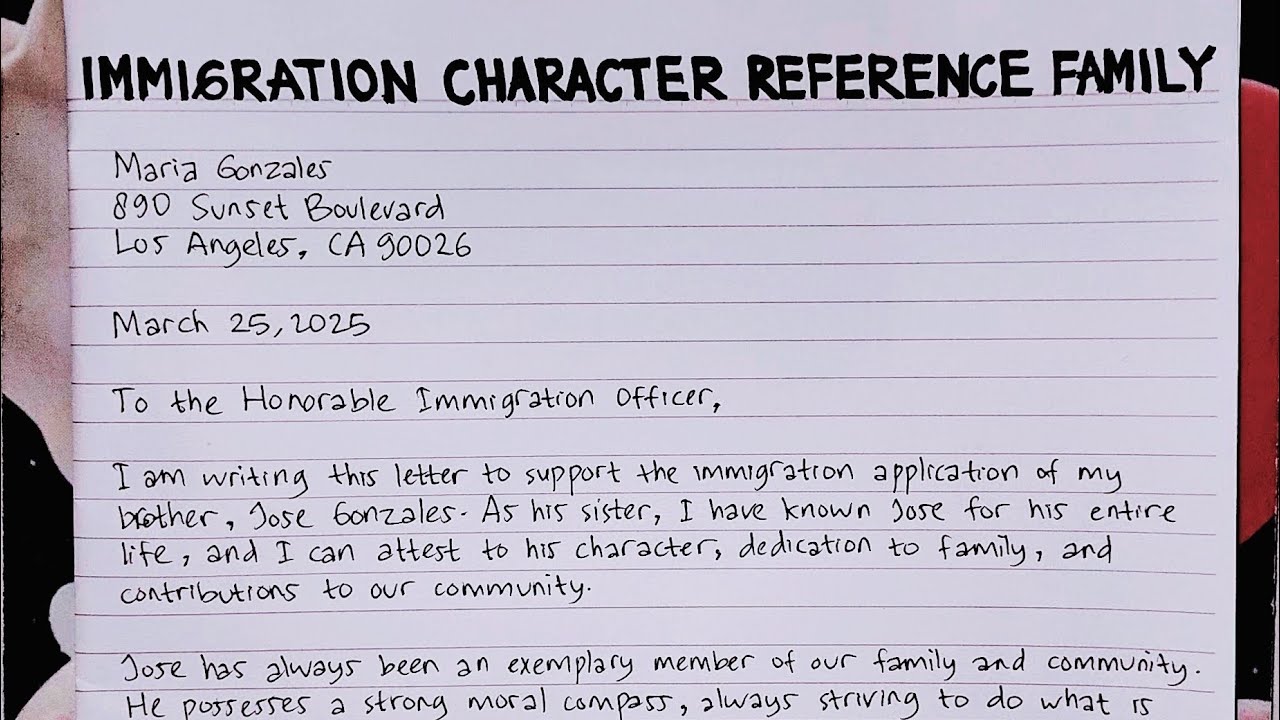 IMMIGRATION CHARACTER REFERENCE FAMILY
Maria Gonzales
890 Sunset Boulevard
Los Angeles, CA 90026
March 25, 2025
To the Honorable Immigration Officer,
I am writing this letter to support the immigration application of my
brother, Jose Gonzales. As his sister, I have known Jose for his entire
life, and I can attest to his character, dedication to family, and
contributions to our community.
Jose has always been an exemplary member of our family and community.
He possesses a strong moral compass, always striving to do what is